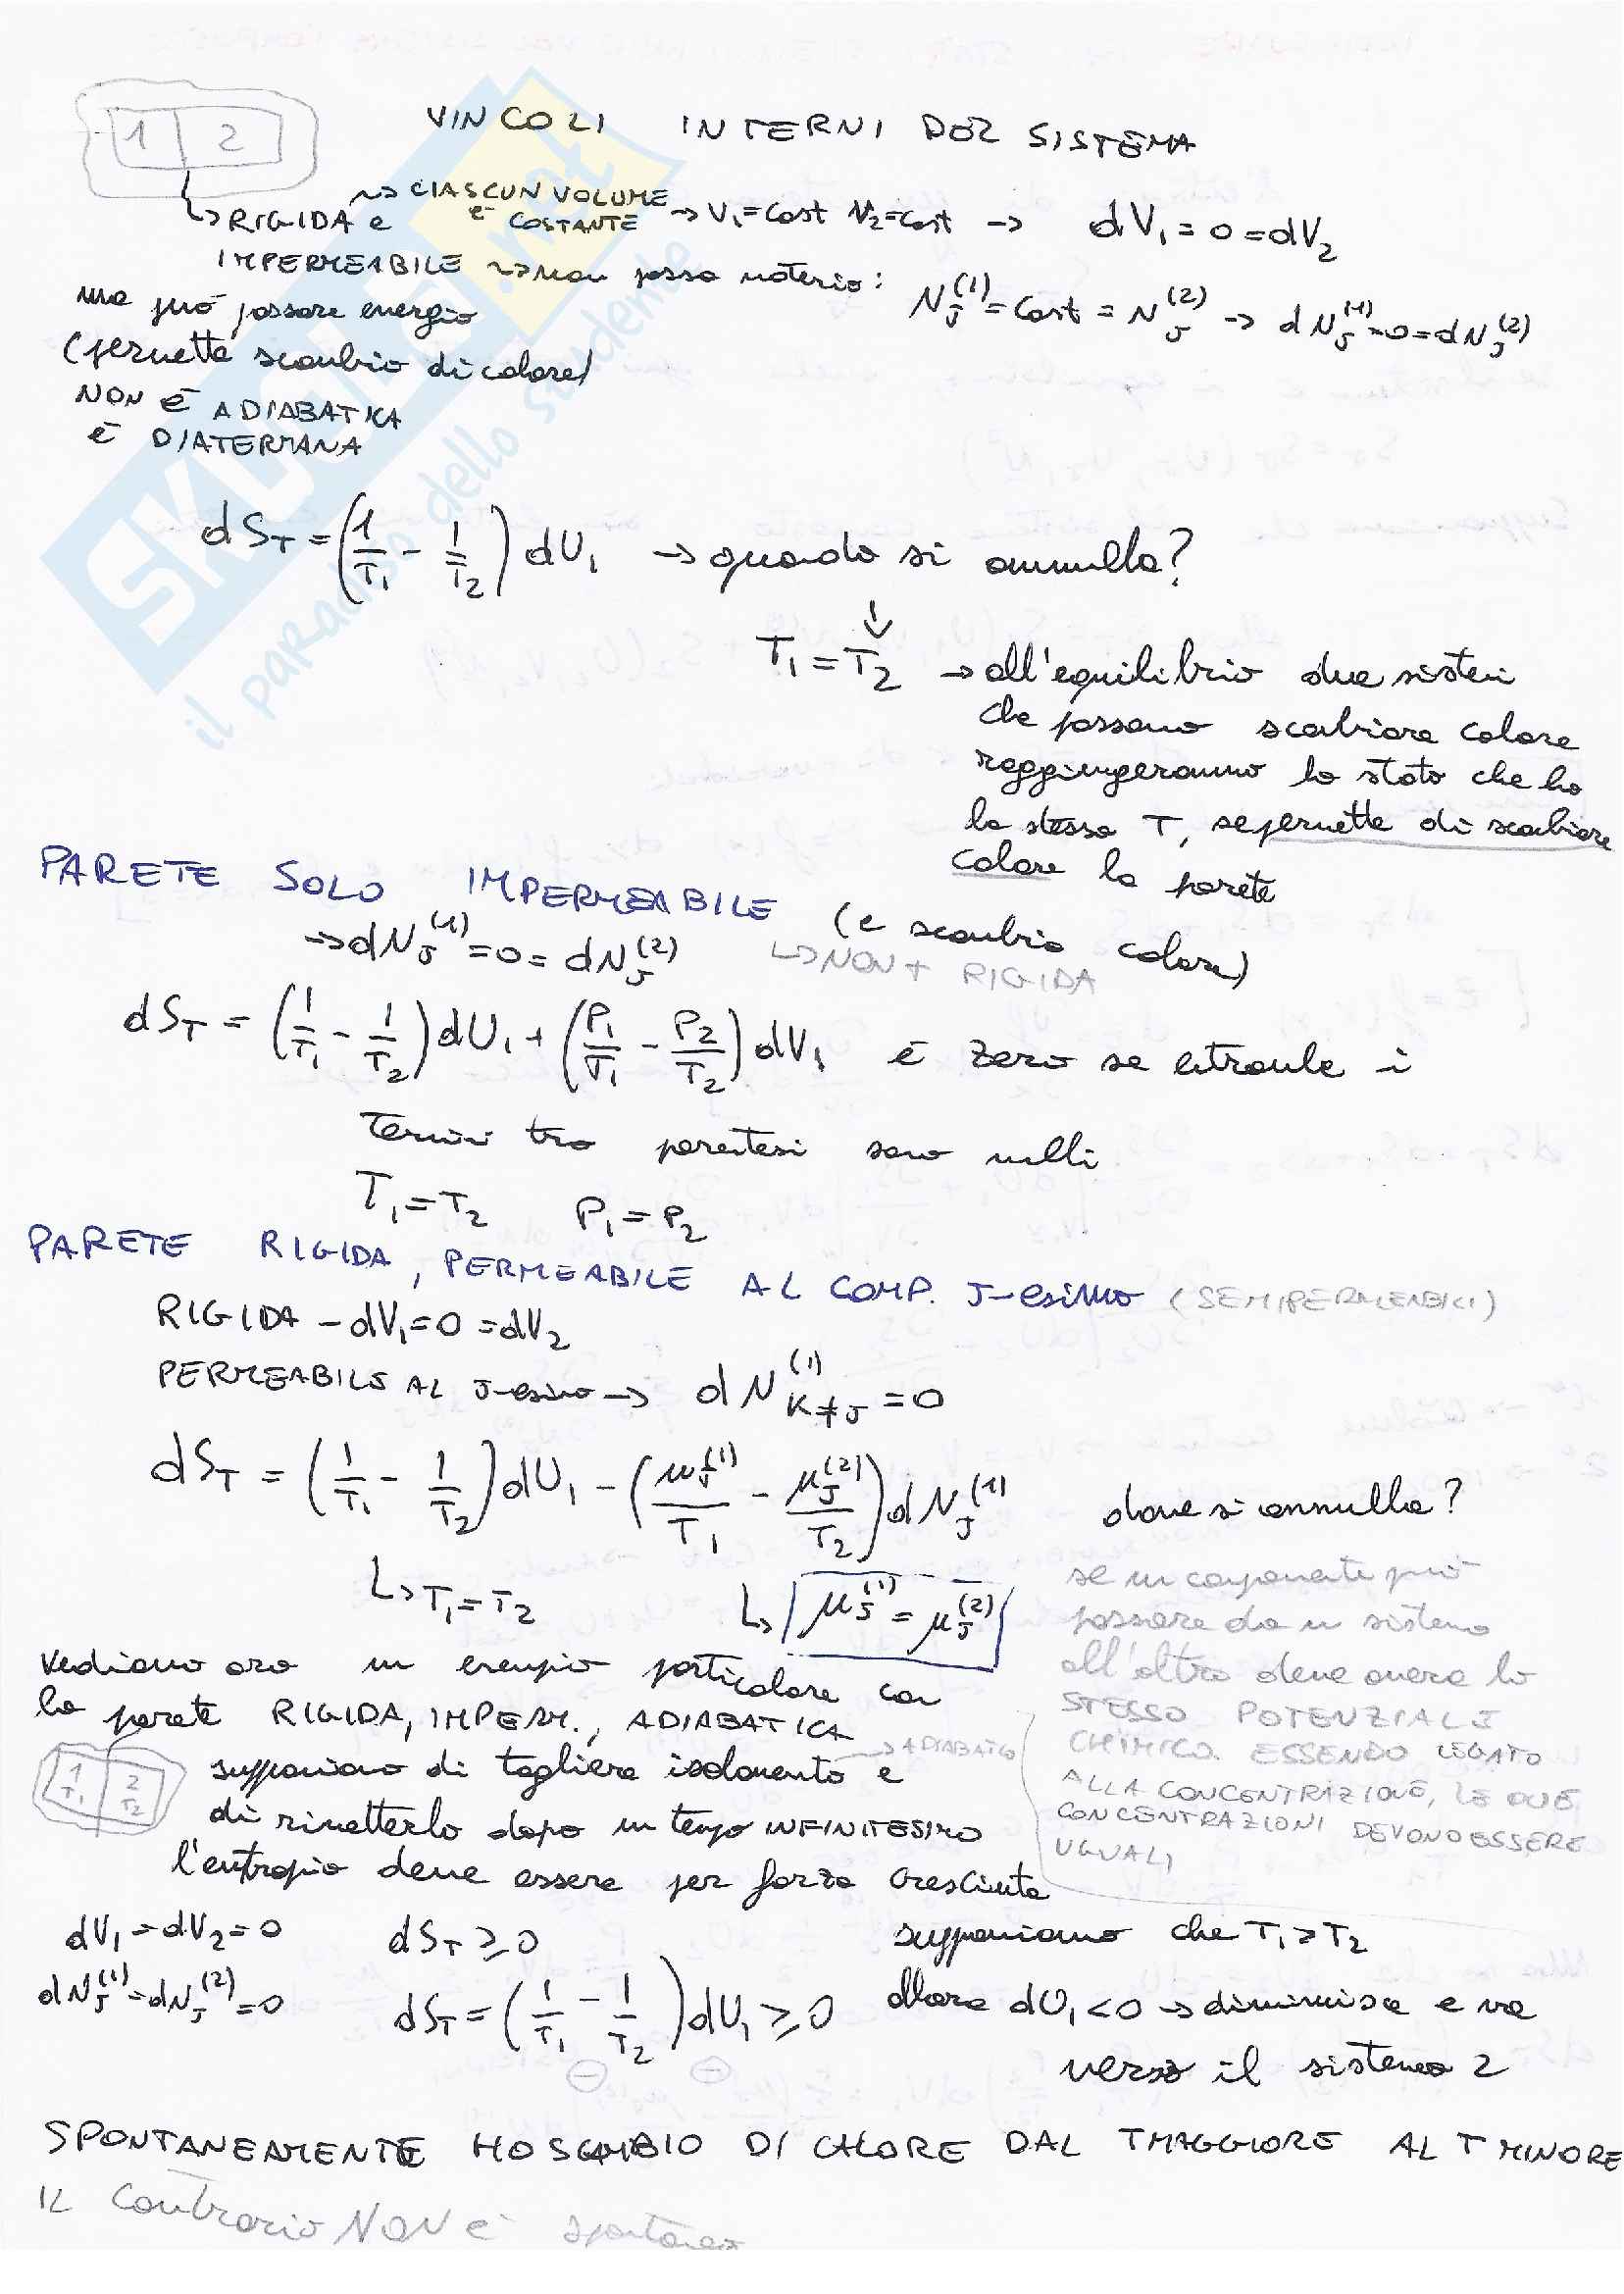 VINCOLI INTERNI DEL SISTEMA
1 2
↳ RIGIDA e ⤳ CIASCUN VOLUME è COSTANTE → V₁=cost V₂=cost → dV₁=0=dV₂
IMPERMEABILE ⤳ non passa materia: N_J^(1)=cost=N_J^(2) → dN_J^(1)=0=dN_J^(2)
ma può passare energia
(permette scambio di calore)
NON È ADIABATICA
È DIATERMANA
dS_T = (1/T₁ - 1/T₂) dU₁ → quando si annulla?
↓
T₁=T₂ → all'equilibrio due sistemi
che possono scambiare calore
raggiungeranno lo stato che ha
la stessa T, se permette di scambiare
calore la parete
PARETE SOLO IMPERMEABILE (e scambia calore)
→ dN_J^(1)=0=dN_J^(2) ↳ NON + RIGIDA
dS_T = (1/T₁ - 1/T₂) dU₁ + (P₁/T₁ - P₂/T₂) dV₁ è zero se entrambe i
termini tra parentesi sono nulli
T₁=T₂ P₁=P₂
PARETE RIGIDA, PERMEABILE AL COMP. J-esimo (SEMIPERMEABILI)
RIGIDA - dV₁=0=dV₂
PERMEABILE AL J-esimo → dN_K≠J^(1)=0
dS_T = (1/T₁ - 1/T₂) dU₁ - (μ_J^(1)/T₁ - μ_J^(2)/T₂) dN_J^(1) dove si annulla?
↳ T₁=T₂ ↳ μ_J^(1)=μ_J^(2)
se un componente può
passare da un sistema
all'altro deve avere lo
STESSO POTENZIALE
CHIMICO. ESSENDO LEGATO
ALLA CONCENTRAZIONE, LE DUE
CONCENTRAZIONI DEVONO ESSERE
UGUALI
Vediamo ora un esempio particolare con
la parete RIGIDA, IMPERM., ADIABATICA
1 T₁ 2 T₂
supponiamo di togliere isolamento e → ADIABATICO
di rimetterlo dopo un tempo INFINITESIMO
l'entropia deve essere per forza cresciuta
dV₁=dV₂=0 dS_T ≥ 0 supponiamo che T₁>T₂
dN_J^(1)=dN_J^(2)=0 dS_T = (1/T₁ - 1/T₂) dU₁ ≥ 0 allora dU₁<0 → diminuisce e va
⊖ ⊖ verso il sistema 2
SPONTANEAMENTE HO SCAMBIO DI CALORE DAL T MAGGIORE AL T MINORE
IL contrario NON è spontaneo
SKUOLA.net
il paradiso dello studente